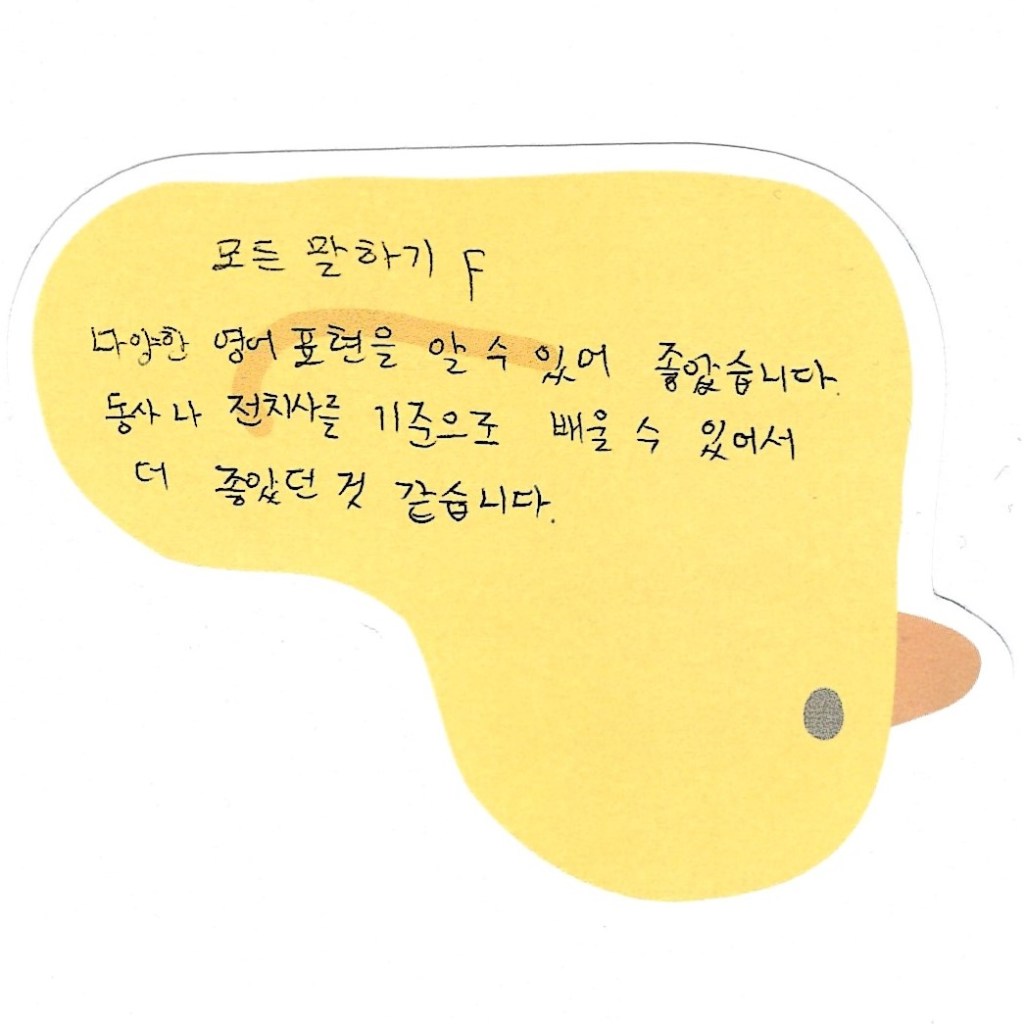 모든 말하기 F
다양한 영어 표현을 알 수 있어 좋았습니다.
동사나 전치사를 기준으로 배울 수 있어서
더 좋았던 것 같습니다.